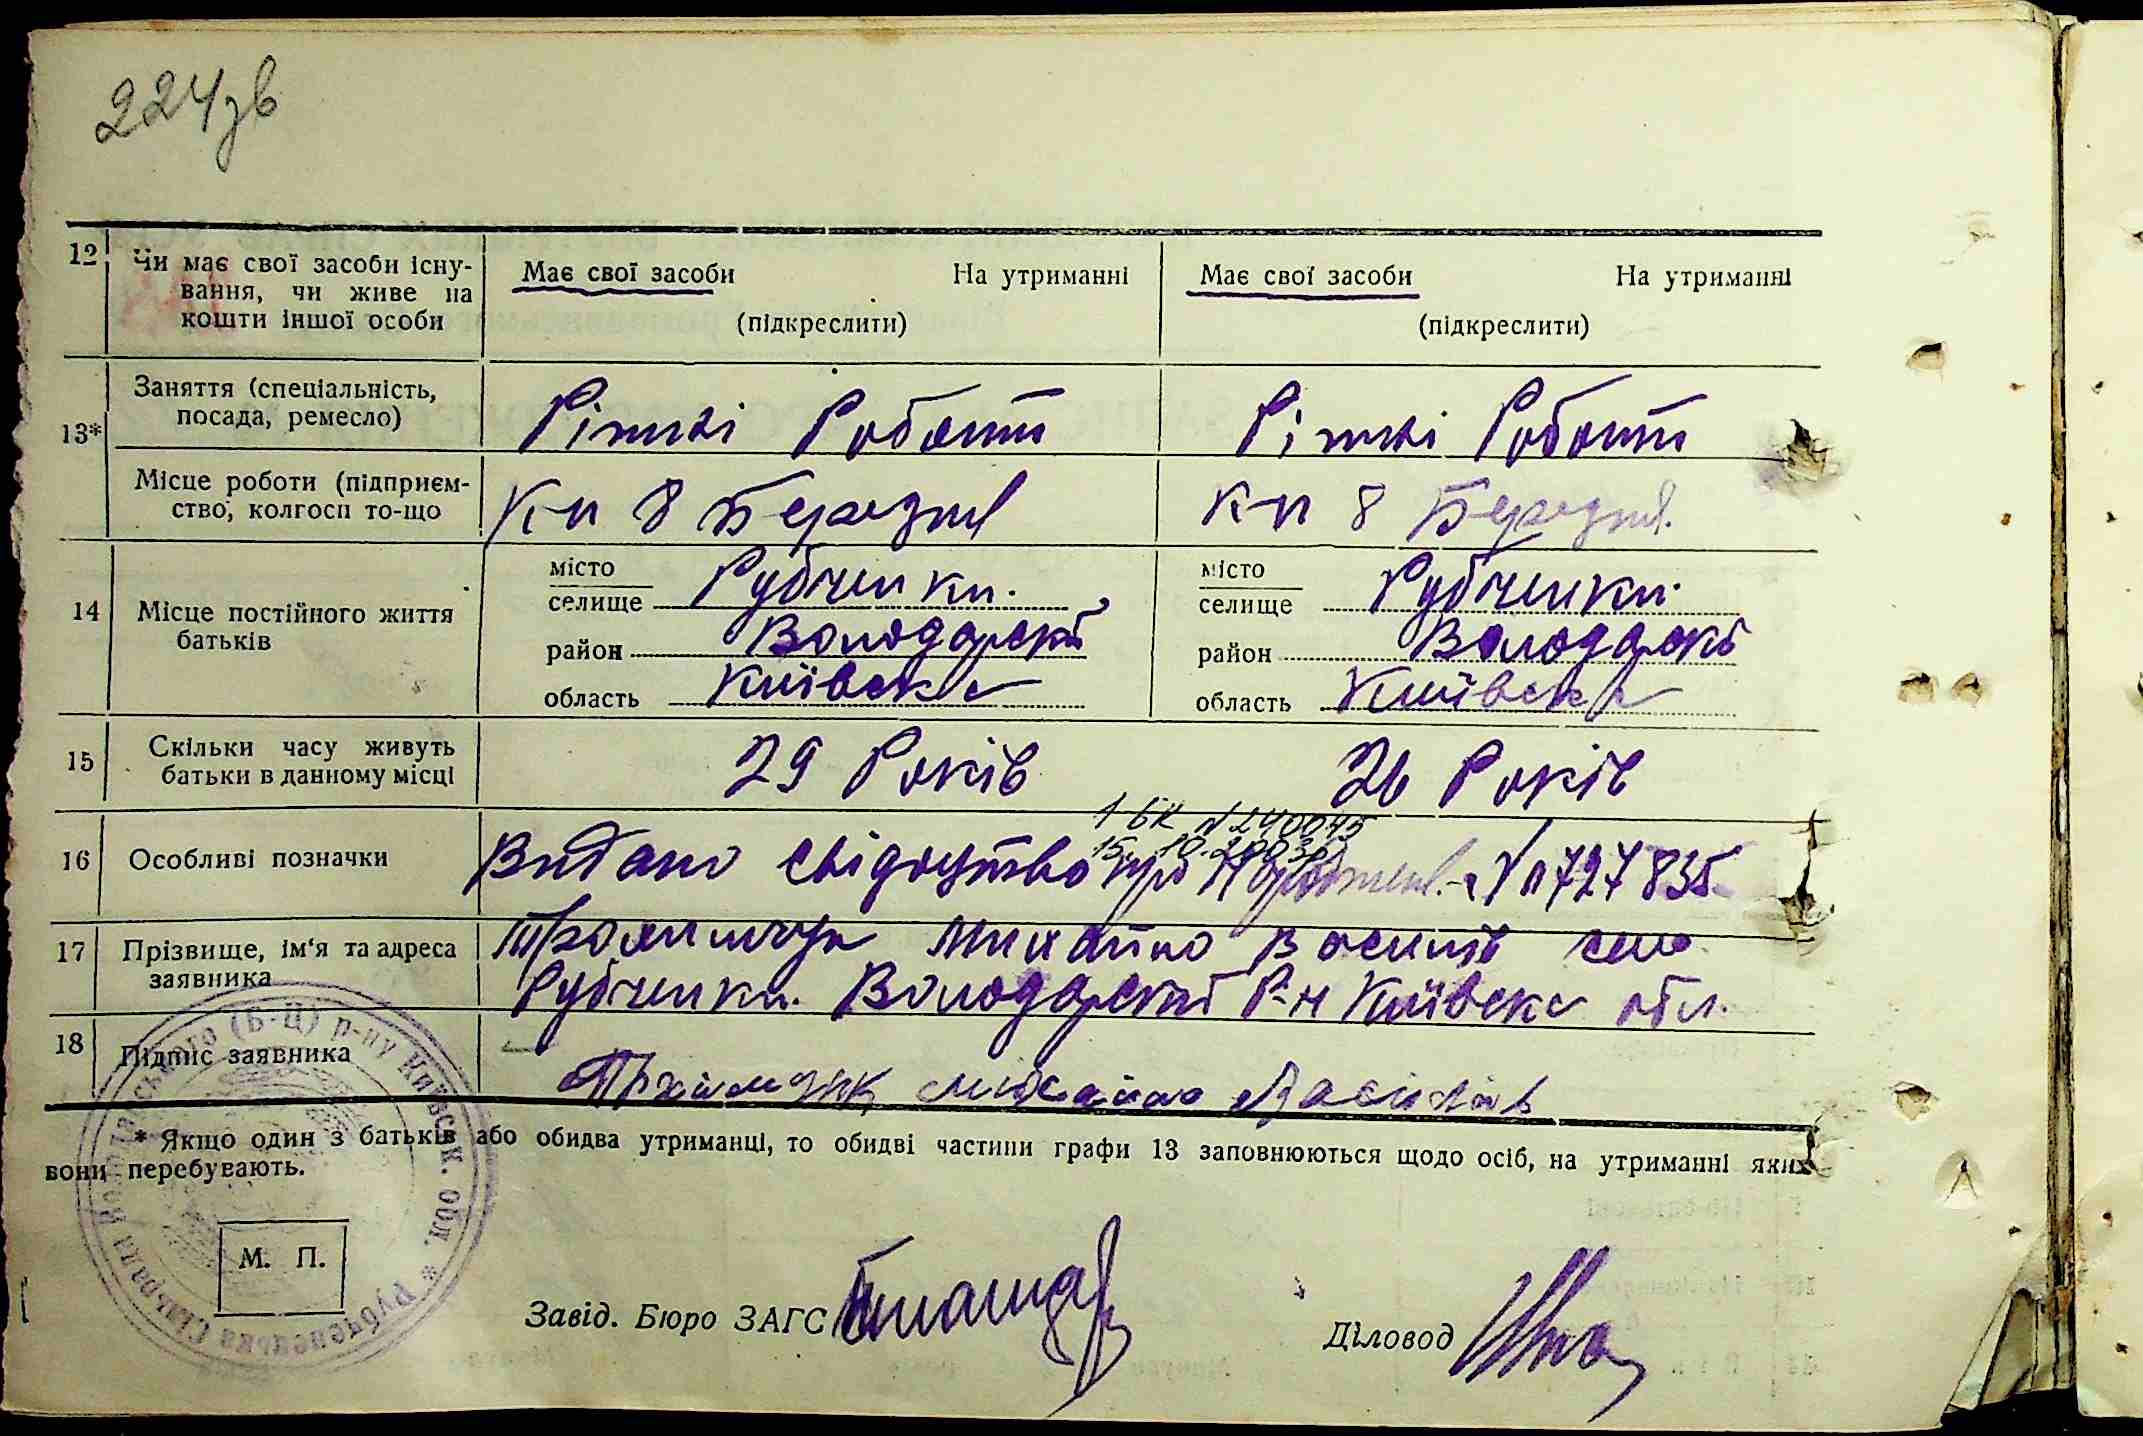 224зв
12 Чи має свої засоби існу-
вання, чи живе на
кошти іншої особи
Має свої засоби На утриманні
(підкреслити)
Має свої засоби На утриманні
(підкреслити)
13*
Заняття (спеціальність,
посада, ремесло)
Ріжні Роботи
Ріжні Роботи
Місце роботи (підприєм-
ство, колгосп то-що
К-п 8 Березня
К-п 8 Березня
14 Місце постійного життя
батьків
місто
селище Рубченки.
район Володарскі
область Київска
місто
селище Рубченки.
район Володарскі
область Київска
15 Скільки часу живуть
батьки в данному місці
29 Років
26 Років
16 Особливі позначки
1 БК N 240045
15. 10. 2003р
Видано свідоцтво про Народжен. № 727835
17 Прізвище, ім'я та адреса
заявника
Трохимчук Михайло Василів село
Рубченки. Володарскі Р-н Київска обл.
18 Підпис заявника
Трхимчук михайло Василів
* Якщо один з батьків або обидва утриманці, то обидві частини графи 13 заповнюються щодо осіб, на утриманні яких
вони перебувають.
М. П.
Рубченецька Сільрада (Б-Ц) р-ну Київськ. обл. *
Завід. Бюро ЗАГС
Діловод